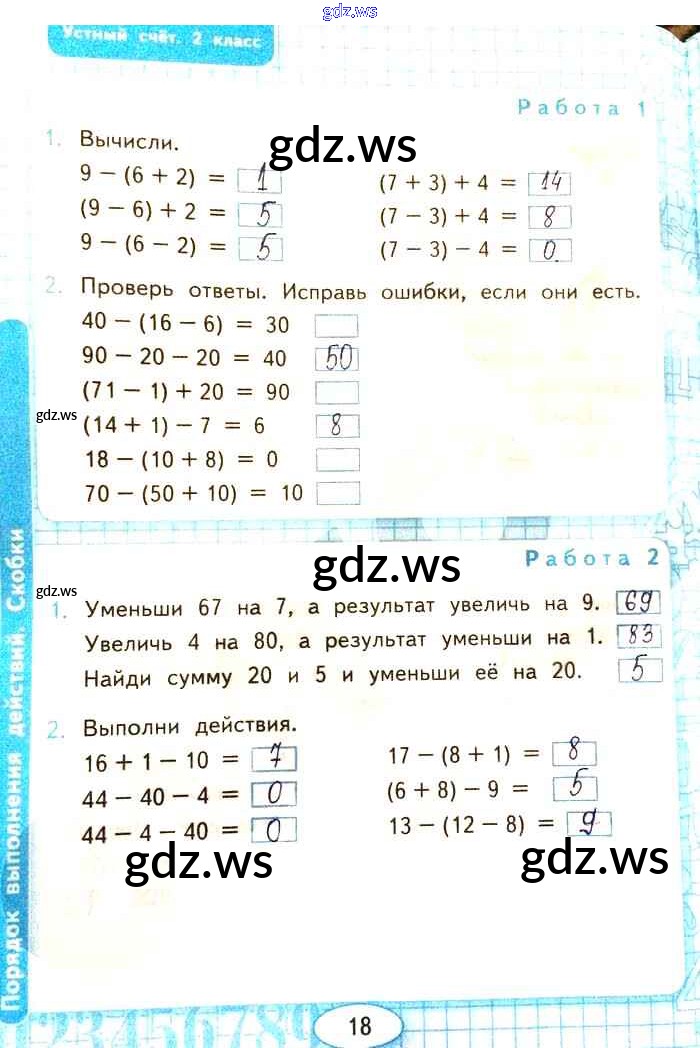 gdz.ws
Устный счёт. 2 класс
Работа 1
1. Вычисли.
9 − (6 + 2) = 1
(7 + 3) + 4 = 14
(9 − 6) + 2 = 5
(7 − 3) + 4 = 8
9 − (6 − 2) = 5
(7 − 3) − 4 = 0
gdz.ws
2. Проверь ответы. Исправь ошибки, если они есть.
40 − (16 − 6) = 30
90 − 20 − 20 = 40 50
(71 − 1) + 20 = 90
gdz.ws
(14 + 1) − 7 = 6 8
18 − (10 + 8) = 0
70 − (50 + 10) = 10
Работа 2
gdz.ws
gdz.ws
1. Уменьши 67 на 7, а результат увеличь на 9. 69
Увеличь 4 на 80, а результат уменьши на 1. 83
Найди сумму 20 и 5 и уменьши её на 20. 5
2. Выполни действия.
16 + 1 − 10 = 7
17 − (8 + 1) = 8
44 − 40 − 4 = 0
(6 + 8) − 9 = 5
44 − 4 − 40 = 0
13 − (12 − 8) = 9
gdz.ws
gdz.ws
Порядок выполнения действий. Скобки
123456789
18